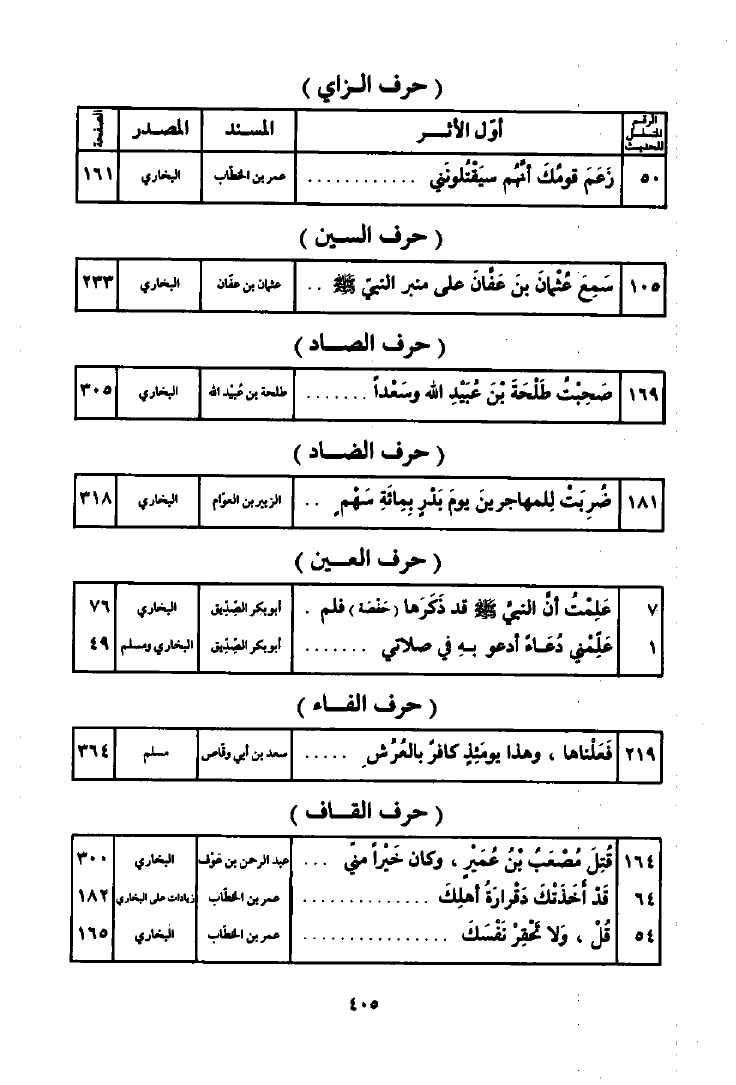 ( حرف الـزاي )
الرقم المتسلسل للحديث | أوّل الأثــر | المسـند | المصـدر | الصفحة
٥٠ | زَعَمَ قومُكَ أنَّهُم سيَقْتُلونَني ............ | عمر بن الخطّاب | البخاري | ١٦١
( حرف السـين )
١٠٥ | سَمِعَ عُثْمانَ بنَ عَفَّانَ على منبر النبيّ ﷺ .. | عثمان بن عفّان | البخاري | ٢٣٣
( حرف الصــاد )
١٦٩ | صَحِبْتُ طَلْحَةَ بْنَ عُبَيْدِ الله وسَعْداً ....... | طلحة بن عُبيْد الله | البخاري | ٣٠٥
( حرف الضــاد )
١٨١ | ضُرِبَتْ لِلمهاجرينَ يومَ بَدْرٍ بِمائَةِ سَهْمٍ .. | الزبير بن العوّام | البخاري | ٣١٨
( حرف العــين )
٧ | عَلِمْتُ أنَّ النبيَّ ﷺ قد ذَكَرَها (حَفْصَة) فلم . | أبو بكر الصّدِّيق | البخاري | ٧٦
١ | عَلِّمْني دُعَـاءً أدعو بـهِ في صلاتي ....... | أبو بكر الصّدِّيق | البخاري ومسلم | ٤٩
( حرف الفــاء )
٢١٩ | فَعَلْناها ، وهذا يومَئِذٍ كافرٌ بالعُرُشِ ..... | سعد بن أبي وقاص | مسلم | ٣٦٤
( حرف القـاف )
١٦٤ | قُتِلَ مُصْعَبُ بْنُ عُمَيْرٍ ، وكان خَيْراً منّي ... | عبد الرحمن بن عَوْف | البخاري | ٣٠٠
٦٤ | قَدْ أَخَذَتْكَ دَقْرارَةُ أهلِكَ .............. | عمـر بن الخطّاب | زيادات على البخاري | ١٨٢
٥٤ | قُلْ ، وَلا تَحْقِرْ نَفْسَكَ ................ | عمر بن الخطّاب | البخاري | ١٦٥
٤٠٥